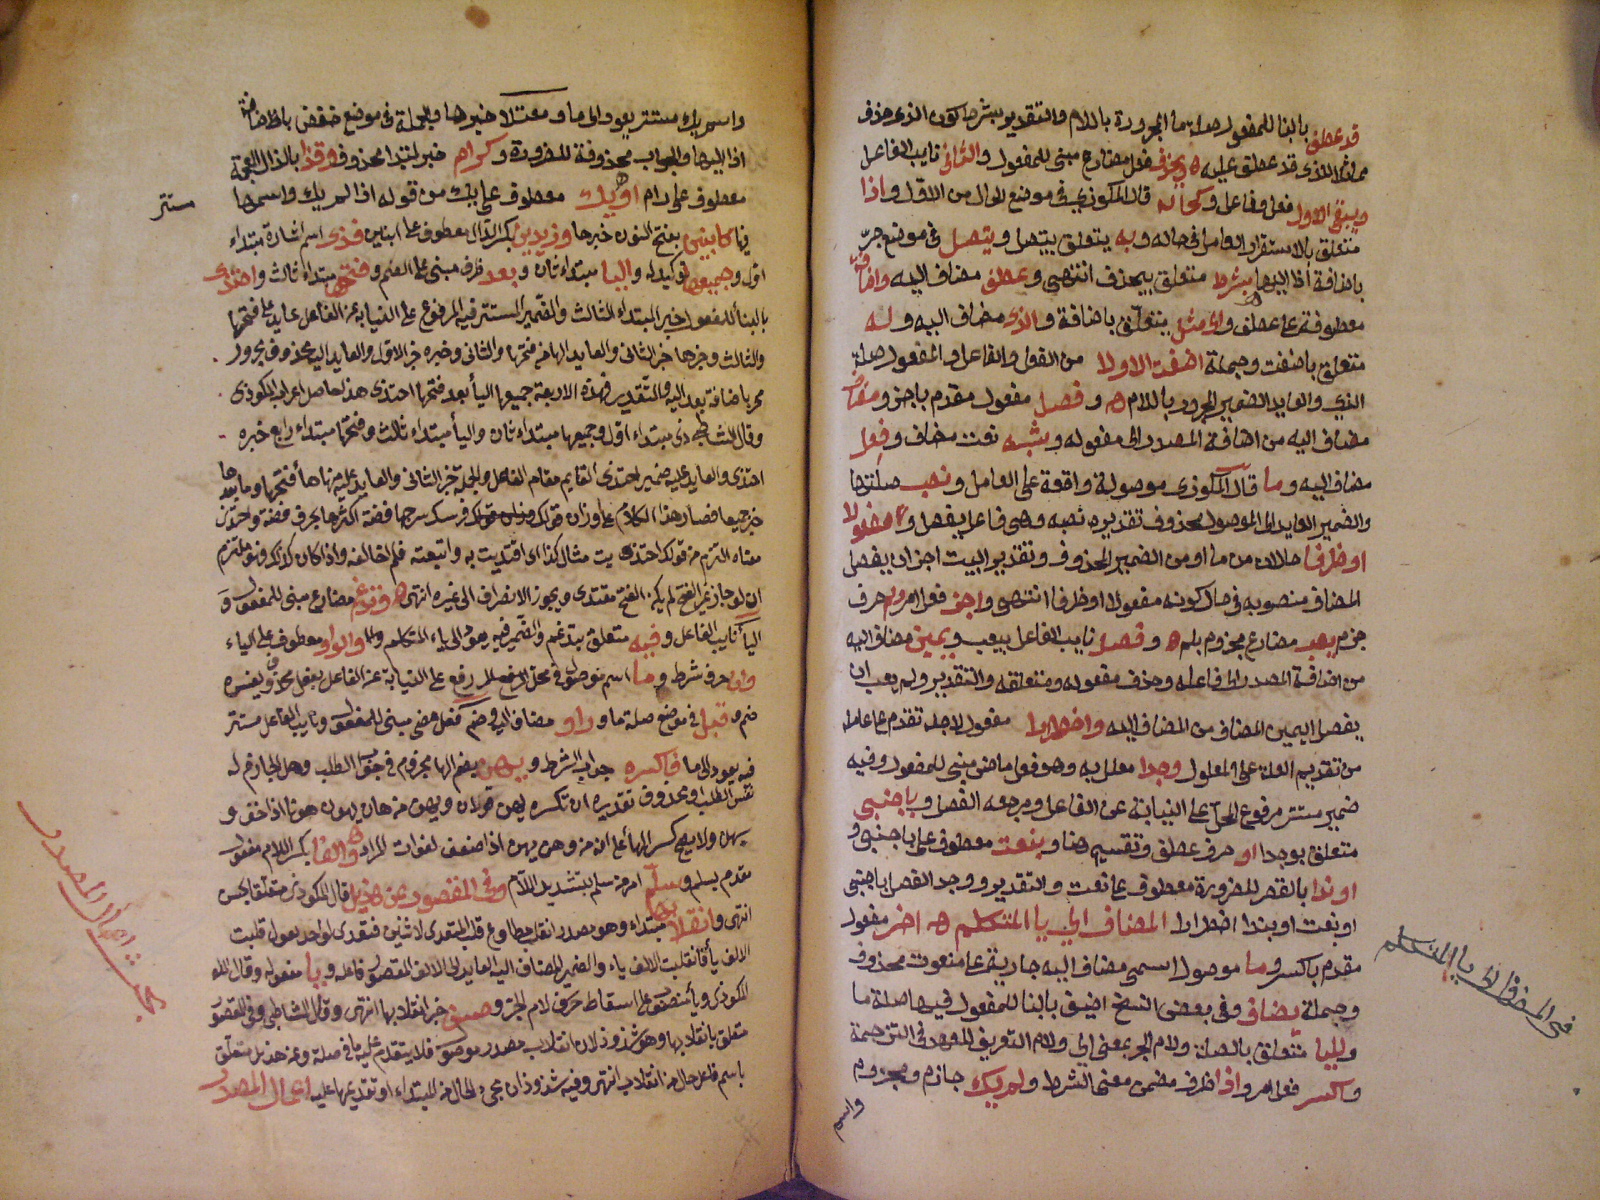 قد عطف بالبنا للمفعول صلة ما المجرورة باللام والتقدير بشرط كون الذى حذف
مماثلا للذى قد عطف عليه ه ويحذف فعل مضارع مبنى للمفعول والثانى نايب الفاعل
ويبقى الاول فعل وفاعل وكحاله قال المكودى فى موضع الحال من الاول واذا
متعلق بالاستقرار العامل فى حاله وبه يتعلق بيتصل ويتصل فى موضع جر
باضافة اذا اليها بشرط متعلق بيحذف انتهى وعطف مضاف اليه واضافة
معطوفة على عطف والى مثل يتعلق باضافة والذى مضاف اليه وله
متعلق باضفت وجملة اضفت الاولا من الفعل والفاعل والمفعول صلة
الذى والعايد الضمير المجرور باللام ه وفصل مفعول مقدم باجز ومضاف
مضاف اليه من اضافة المصدر الى مفعوله وشبه نعت مضاف وفعل
مضاف اليه وما قال المكودى موصولة واقعة على العامل ونصب صلتها
والضمير العايد الى الموصول محذوف تقديره نصبه وهى فاعل بفصل ومفعولا
او ظرفا حالان من ما او من الضمير المحذوف وتقدير البيت اجز ان يفصل
المضاف منصوبه فى حال كونه مفعولا او ظرفا انتهى واجز فعل امر ولم حرف
جزم يعب مضارع مجزوم بلم ه وفصل نايب الفاعل بيعب ويمين مضاف اليه
من اضافة المصدر الى فاعله وحذف مفعوله ومتعلقه والتقدير ولم يعب ان
يفصل اليمين المضاف من المضاف اليه واضطرارا مفعول لاجله تقدم على عامله
من تقديم العلة على المعلول وجدا معلل به وهو فعل ماض مبنى للمفعول وفيه
ضمير مستتر مرفوع المحل على النيابة عن الفاعل ومرجعه الفصل وباجنبى
متعلق بوجدا او حرف عطف وتقسيم هنا وبنعت معطوف على باجنبى و
او ندا بالقصر للضرورة معطوف على نعت والتقدير ووجد الفصل باجنبى
او نعت او بندا اضطرارا المضاف الى يا المتكلم ه اخر مفعول
مقدم باكسر وما موصول اسمى مضاف اليه جارية على منعوت محذوف
وجملة يضاف وفى بعض النسخ اضيف بالبنا للمفعول فيها صلة ما
ولليا متعلق بالصلة ولام الجر بمعنى الى ولام التعريف للعهد فى الترجمة
واكسر فعل امر واذا ظرف مضمن معنى الشرط ولم يك جازم ومجزوم
واسم
فى المضاف الى يا المتكلم
واسم يك مستتر يعود الى ما ومعتلا خبرها والجملة فى موضع خفض باضافة
اذا اليها والجواب محذوف للضرورة وكرام خبر لمبتدا محذوف وقذا بالذال المعجمة
معطوف على رام او يك معطوف على يك من قوله اذا لم يك واسمها
مستتر
فيها كابنين بفتح النون خبرها وزيدين بكسر الدال معطوف على ابنين فذى اسم اشارة مبتداء
اول وجميعها توكيد له واليا مبتداء ثان وبعد ظرف مبنى على الضم وفتحها مبتداء ثالث واحتذى
بالبنا للمفعول خبر المبتداء الثالث والضمير المستتر فيه المرفوع على النيابة عن الفاعل عايد على فتحها
والثالث وخبرها خبر الثانى والعايد الها من فتحها والثانى وخبره خبر الاول والعايد اليه محذوف مجرور
محل باضافة بعد اليه والتقدير فهذه الاربعة جميعها اليا بعد فتحها احتذى هذا حاصل اعراب المكودى
وقال الشاطبى ذى مبتداء اول وجميعها مبتداء ثان واليا مبتداء ثالث وفتحها مبتداء رابع خبره
احتذى والعايد عليه ضمير احتذى القايم مقام الفاعل والجملة خبر الثانى والعايد عليه منها ها فتحها وما بعدها
خبر جميعها فصار هذا الكلام على وزان قولك
معناه التزم من قولك احتذيت مثال كذا اى اقتديت به واتبعته فلم اخالفه واذا كان كذلك فهو ملتزم
ان لو جاز غير الفتح لم يكن الفتح مقتدى ويجوز الانصراف الى غيره انتهى ه وتدغم مضارع مبنى للمفعول و
اليا نايب الفاعل وفيه متعلق بتدغم والضمير فيه يعود الى ياء المتكلم والواو معطوف على الياء
وان حرف شرط وما اسم موصول فى محل رفع على النيابة عن الفاعل بفعل محذوف يفسره
ضم وقبل فى موضع صلة ما وواو مضاف اليه وضم فعل ماض مبنى للمفعول ونايب الفاعل مستتر
فيه يعود الى ما فاكسره جواب الشرط ويهن بضم الها مجزوم فى جواب الطلب وهل الجازم له
نفس الطلب او محذوف تقديره ان تكسره يهن قولان ويهن من هان يهون هونا اذا خف و
يهن ولا يصح كسر الها على انه من وهن يهن اذا ضعف لفوات المراد ه والفا بكسر اللام مفعول
مقدم بسلم وسلم امر من سلم بتشديد اللام وفى المقصور عن هذيل قال المكودى متعلقا بحسن
انتهى وانقلابها مبتداء وهو مصدر انقلب مطاوع قلب المتعدى لاثنين فتعدى لواحد يعول قلبت
الالف يأ فانقلبت الالف ياء والضمير المضاف اليه العايد الى الالف المقصور فاعله ويا مفعوله وقال
المكودى ويأ منصوب على اسقاط حرف لام الجر وحسن خبر انقلابها انتهى وقال الشاطبى وفى المقصور
متعلق بانقلابها وهو شذوذ لان انقلاب مصدر موصول فلا يتقدم عليه ما فى صلته وعن هذيل متعلق
باسم فاعل حال من انقلاب انتهى وفيه شذوذان مجى الحال من المبتداء او تقديمها عليه اعمال المصدر
مبحث اعمال المصدر